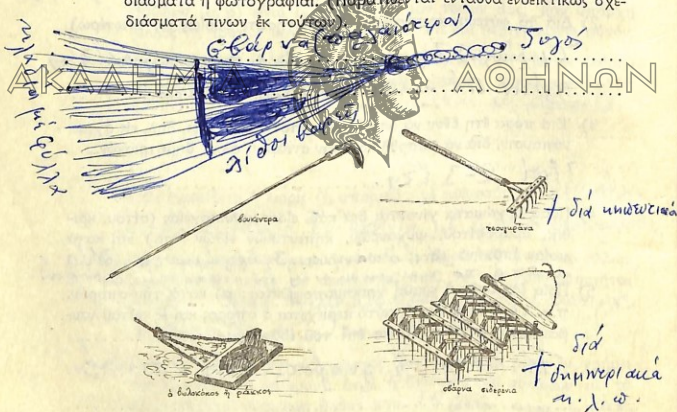 διάσματα ἢ φωτογραφίαι. (Παρατίθενται ἐνταῦθα ἐνδεικτικῶς σχε-
διάσματά τινων ἐκ τούτων).
σβάρνα (παλαιότερον)
ζυγός
ΑΚΑΔΗΜΙΑ ΑΘΗΝΩΝ
κλαριά μέ φύλλα
λίθοι βαρεῖς
βουκέντρα
τσουγκράνα
+ διά κηπευτικά
ὁ βωλοκόπος ἢ ράκκος
σβάρνα σιδερένια
+ διά
δημητριακά
κ.λ.π.